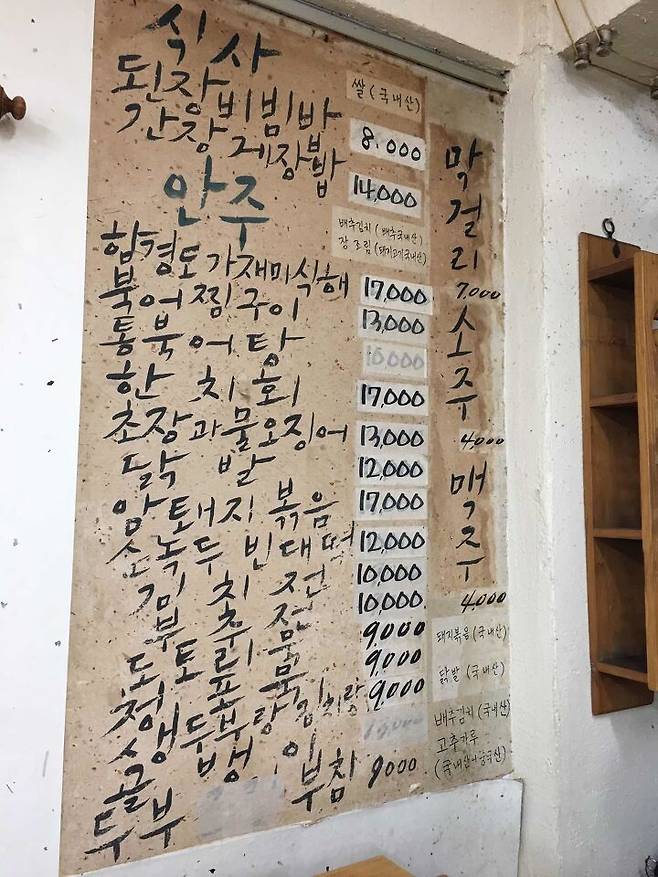 식사
쌀(국내산)
된장비빔밥 8.000
간장게장밥 14,000
안주
배추김치 (배추국내산)
장조림(돼지고기국내산)
함경도가재미식해 17,000
북어찜구이 13,000
통북어탕 10,000
한치회 17,000
초장과물오징어 13,000
닭발 12,000
암퇘지볶음 17,000
손녹두빈대떡 12,000
김치전 10,000
부추전 10,000
도토리묵 9,000
청포묵 9,000
생두부랑김치랑 9,000
골뱅이
두부 부침 9000
막걸리
7,000
소주
4,000
맥주
4,000
돼지볶음(국내산)
닭발(국내산)
배추김치(국내산)
고추가루